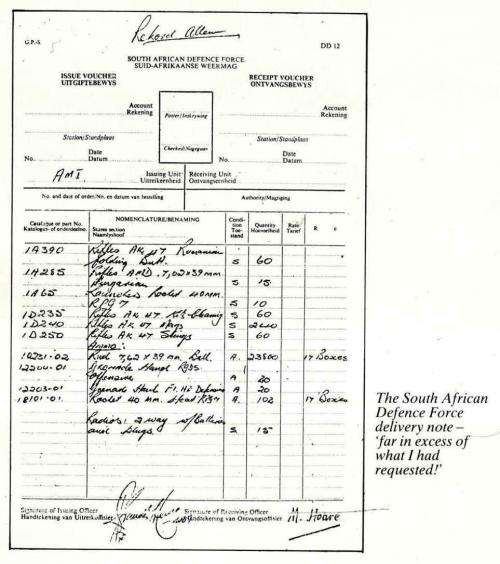 Rekord Allen
G.P.-S
DD 12
SOUTH AFRICAN DEFENCE FORCE
SUID-AFRIKAANSE WEERMAG
ISSUE VOUCHER
UITGIFTEBEWYS
RECEIPT VOUCHER
ONTVANGSBEWYS
Account
Rekening
Account
Rekening
Station/Standplaas
Station/Standplaas
Date
No. Datum
Date
No. Datum
AMI
Issuing Unit
Uitreikeenheid
Receiving Unit
Ontvangseenheid
No. and date of order/No. en datum van bestelling
Authority/Magtiging
Catalogue or part No.
NOMENCLATURE/BENAMING
Condition
Toestand
Quantity
Hoeveelheid
Rate
Tarief
R c
1A390 Rifles AK 47 Rumanian
Folding Butt. S 60
1A285 Rifles AMD 7,62x39mm.
Hungarian S 15
1A65 Launcher Rocket 40mm.
RPG 7 S 10
1D235 Rifles AK 47 Kit-Cleaning S 60
1D240 Rifles AK 47 Mags S 240
1D250 Rifles AK 47 Slings S 60
Ammo:
7,62 x 39 mm. Ball. A. 23800 17 Boxes
Offensive A 20
12203-01 A 20
18101-01. Rocket 40 mm. A. 102 17 Boxes
Radios: 2 way
and slings. S 15
Signature of Issuing Officer
Handtekening van Uitreikoffisier
Signature of Receiving Officer
Handtekening van Ontvangsoffisier
M. Hoare
The South African
Defence Force
delivery note –
'far in excess of
what I had
requested!'